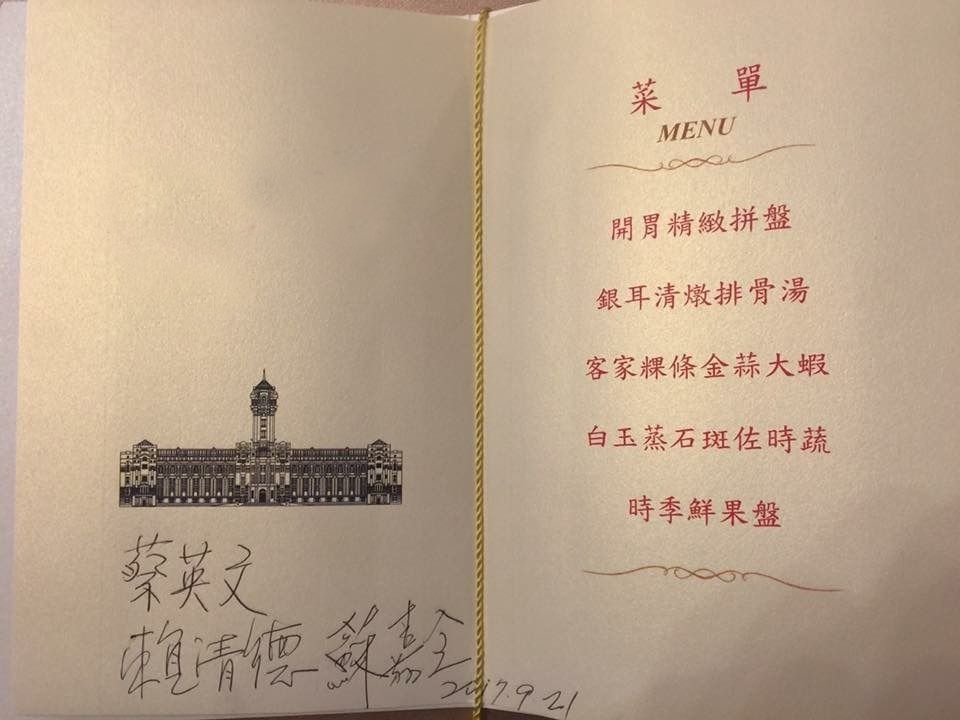 蔡英文
賴清德 蘇嘉全
2017.9.21
菜 單
MENU
開胃精緻拼盤
銀耳清燉排骨湯
客家粿條金蒜大蝦
白玉蒸石斑佐時蔬
時季鮮果盤